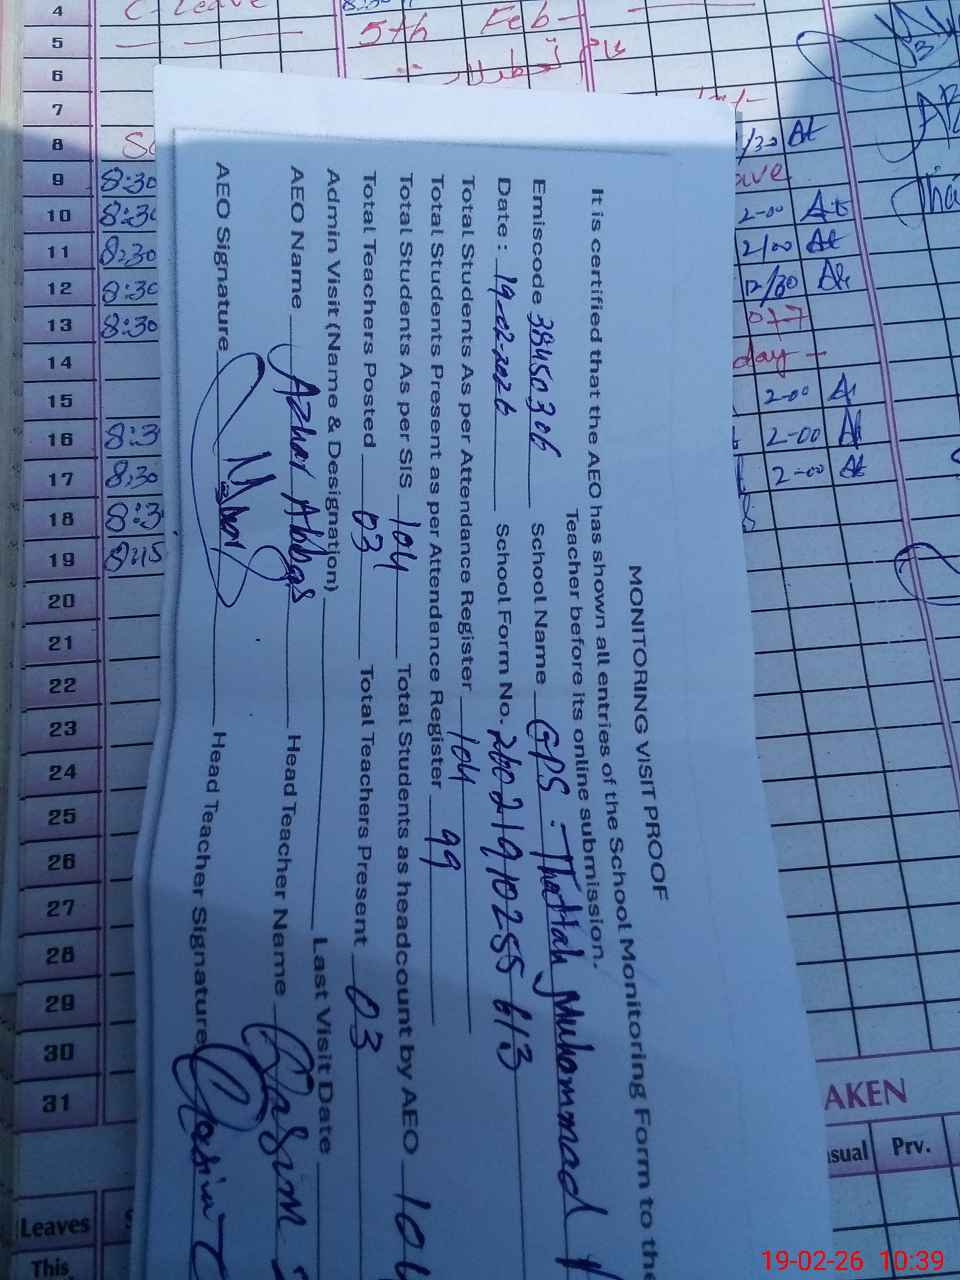 MONITORING VISIT PROOF
It is certified that the AEO has shown all entries of the School Monitoring Form to the
Teacher before its online submission.
Emiscode 38450306 School Name GPS :- Thattah Muhammad
Date : 19-02-2026 School Form No. 26021910255613
Total Students As per Attendance Register 104
Total Students Present as per Attendance Register 99
Total Students As per SIS 104 Total Students as headcount by AEO 104
Total Teachers Posted 03 Total Teachers Present 03
Admin Visit (Name & Designation) Last Visit Date
AEO Name Azhar Abbas Head Teacher Name Qasim
AEO Signature Head Teacher Signature
4
5 5th Feb-
6
7
8
9 8:30
10 8:30 2-00 At
11 8:30 2/00 At
12 8:30 12/30 At
13 8:30
14 day -
15 2-00
16 8:3 2-00
17 8:30 2-00 At
18 8:3
19 8:45
20
21
22
23
24
25
26
27
28
29
30
31
AKEN
sual Prv.
Leaves
This
19-02-26 10:39